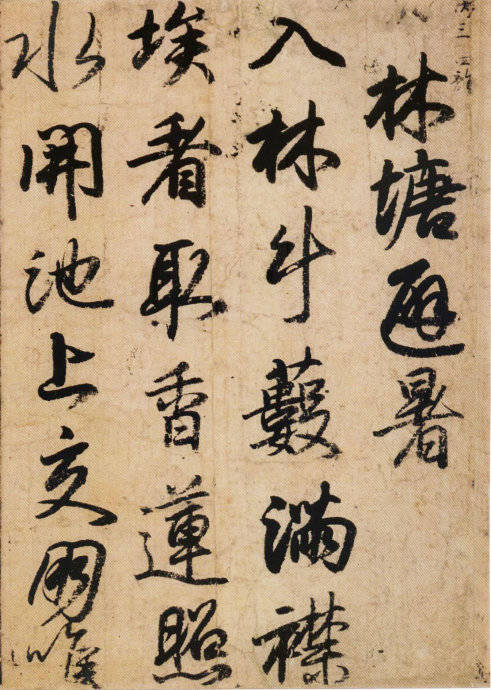 林塘避暑
入林斗藪滿襟
埃看取香蓮照
水開池上交朋唯